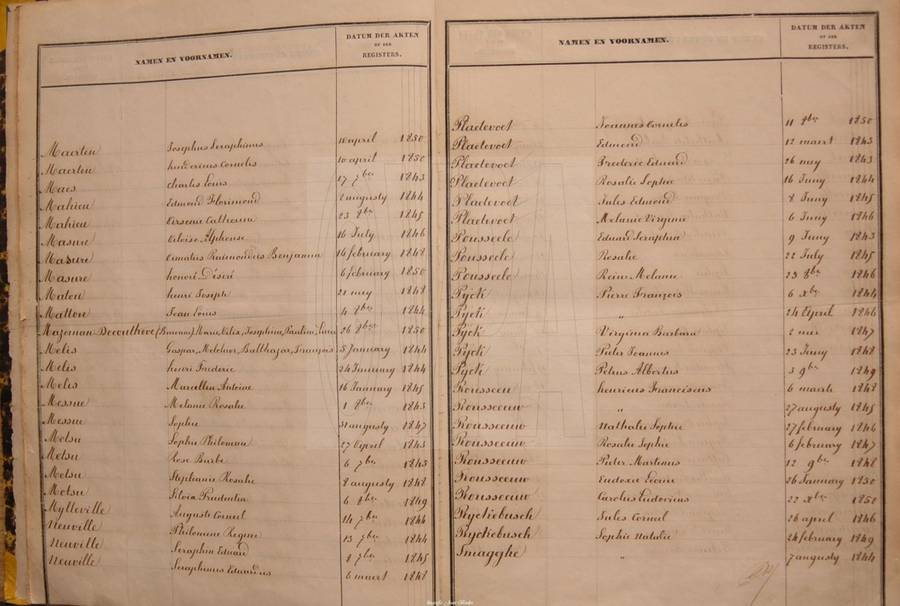 NAMEN EN VOORNAMEN. DATUM DER AKTEN
OF DER
REGISTERS.
Maerten Josephus Seraphinus 10 april 1850
Maerten Ludovicus Cornelis 10 april 1850
Maes Charles Louis 17 7bre 1843
Mahieu Edmond Florimond 2 augusty 1844
Mahieu Catherine 23 8bre 1845
Masure Eloïse Alphonse 16 July 1846
Masure Raimondus Benjamin 16 february 1848
Masure honoré Désiré 6 february 1850
Matou henri Joseph 21 mey 1848
Matton Jean Louis 4 8bre 1844
Mazeman Decouthove Marie, Celis, Josephine, Pauline, 26 8bre 1850
Melis Gaspar, Melchior, Balthazar, François 5 January 1844
Melis henri Frederic 24 January 1844
Melis Marcellin Antoine 16 January 1845
Messue Melanie Rosalie 1 8bre 1843
Messue Sophie 31 augusty 1847
Metsu Sophie Philomene 27 April 1843
Metsu Rose Barbe 6 7bre 1843
Metsu Stephanie Rosalie 8 augusty 1848
Metsu Silvia Prudentia 6 8bre 1849
Mylleville Auguste Corneil 14 7bre 1844
Neuville Philomene Regine 13 7bre 1844
Neuville Seraphin Eduard 8 7bre 1845
Neuville Seraphinus Eduardus 6 maert 1848
NAMEN EN VOORNAMEN. DATUM DER AKTEN
OF DER
REGISTERS.
Plaetevoet Joannes Cornelis 11 8bre 1850
Plaetevoet Edmond 12 maart 1843
Plaetevoet Frederic Eduard 26 mey 1843
Plaetevoet Rosalie Sophie 16 Juny 1844
Plaetevoet Jules Edmond 8 Juny 1845
Plaetevoet Melanie Virginie 6 Juny 1846
Pousseele Eduard Seraphin 9 Juny 1843
Pousseele Rosalie 22 July 1845
Pousseele Reine Melanie 23 8bre 1846
Pyck Pierre François 6 xbre 1844
Pyck " 24 April 1846
Pyck Virginia Barbara 2 mei 1847
Pyck Pieter Joannes 23 Juny 1848
Pyck Petrus Albertus 3 9bre 1849
Rousseeu henricus Franciscus 6 maerte 1848
Rousseeuw " 27 augusty 1845
Rousseeuw Nathalie Sophie 27 february 1846
Rousseeuw Rosalie Sophie 6 february 1847
Rousseeuw Pieter Martinus 12 9bre 1848
Rousseeuw Eudoxie 26 January 1850
Rousseeuw Carolus Ludovicus 22 xbre 1850
Ryckebusch Jules Corneil 26 april 1846
Ryckebusch Sophie Natalie 24 february 1849
Smagghe " 7 augusty 1844